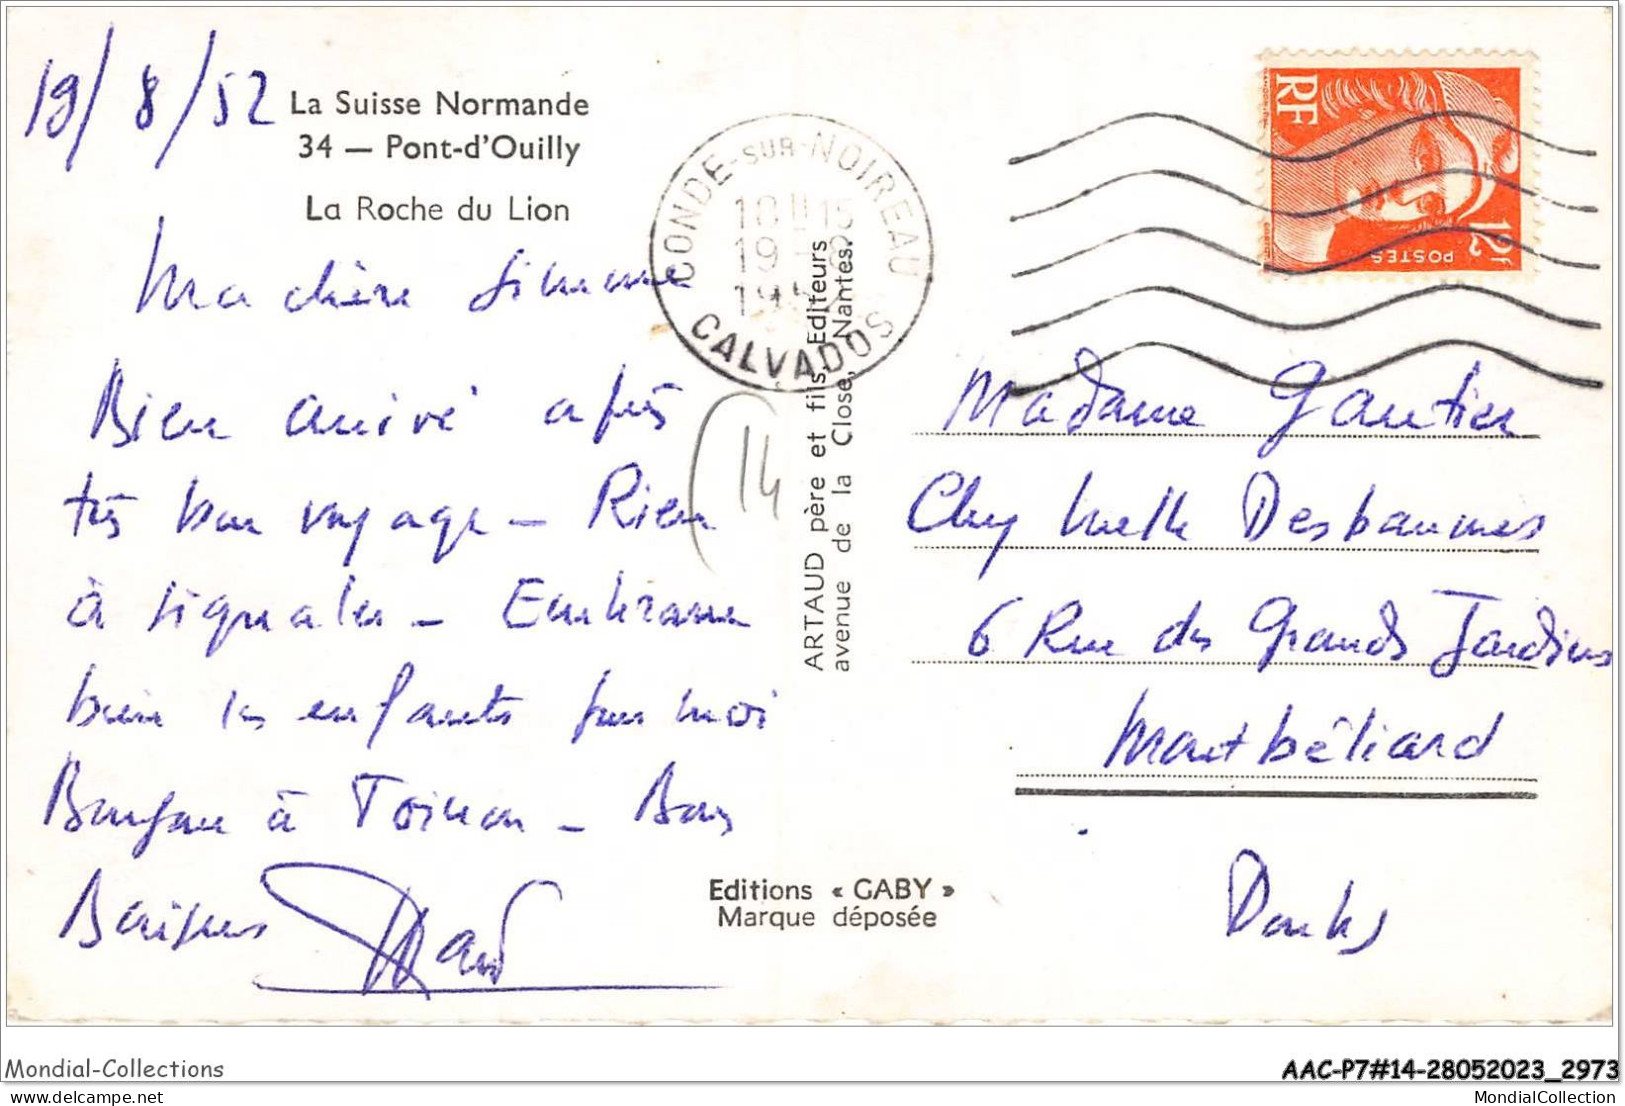 19/8/52
La Suisse Normande
34 — Pont-d'Ouilly
La Roche du Lion
Ma chère
Bien arrivé après
très bon voyage — Rien
à signaler — Embrasse
bien les enfants pour moi
Bonjour à Toinon — Bons
Baisers
CONDE-SUR-NOIREAU
18H15
19-8
1952
CALVADOS
(14
ARTAUD père et fils, Editeurs
avenue de la Close, Nantes.
Editions « GABY »
Marque déposée
RF
POSTES
12F
Madame Gautier
Chez Melle Desbaumes
6 Rue des Grands Jardins
Montbéliard
Doubs
Mondial-Collections
AAC-P7#14-28052023_2973
www.delcampe.net
MondialCollection